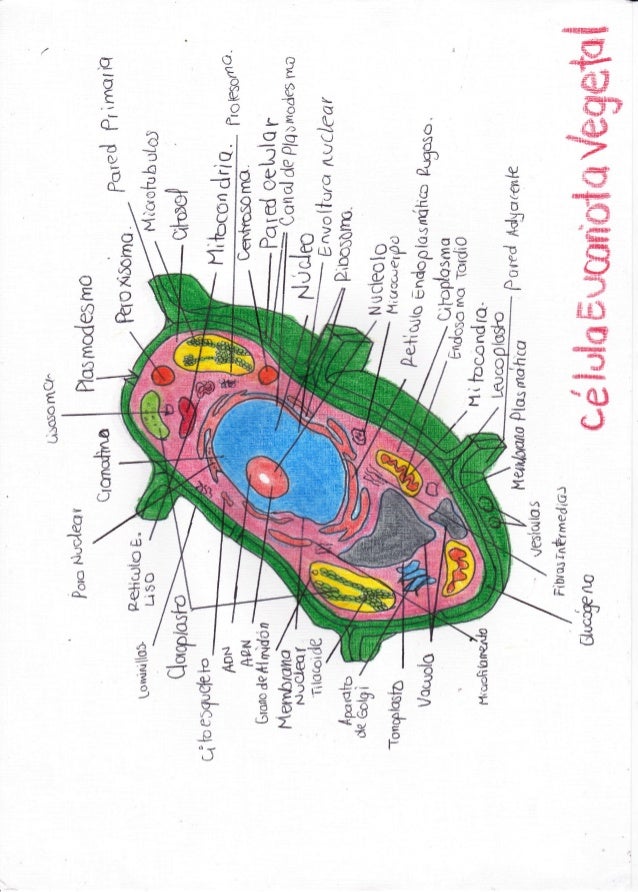 Célula Eucariota Vegetal
Lisosomas
Plasmodesmo
Peroxisoma.
Pared Primaria
Microtubulos
Citosol
Mitocondria.
Centrosoma.
Pared celular
Canal de Plasmodesmo
Núcleo
Envoltura nuclear
Ribosoma.
Nucleolo
Microcuerpo
Retículo Endoplasmático Rugoso.
Citoplasma
Endosoma Tardio
Mitocondria.
Leucoplasto
Pared Adyacente
Membrana Plasmática
Vesículas
Fibras Intermedias
Glucógeno
Cromatina
Poro Nuclear
Retículo E.
Liso
Laminillas
Cloroplasto
Citoesqueleto
ADN
ARN
Grano de Almidón
Membrana
Nuclear
Tilacoide
Aparato
de Golgi
Tonoplasto
Vacuola
Microfilamento